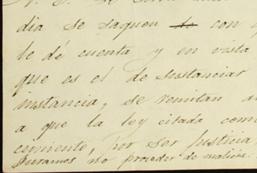 dia se saquen con
le dé cuenta y en vista
que es el de sustanciar
instancia, se remitan
a que la ley citada com
cumente, por ser Justicia,
Juramos no proceder de malicia.